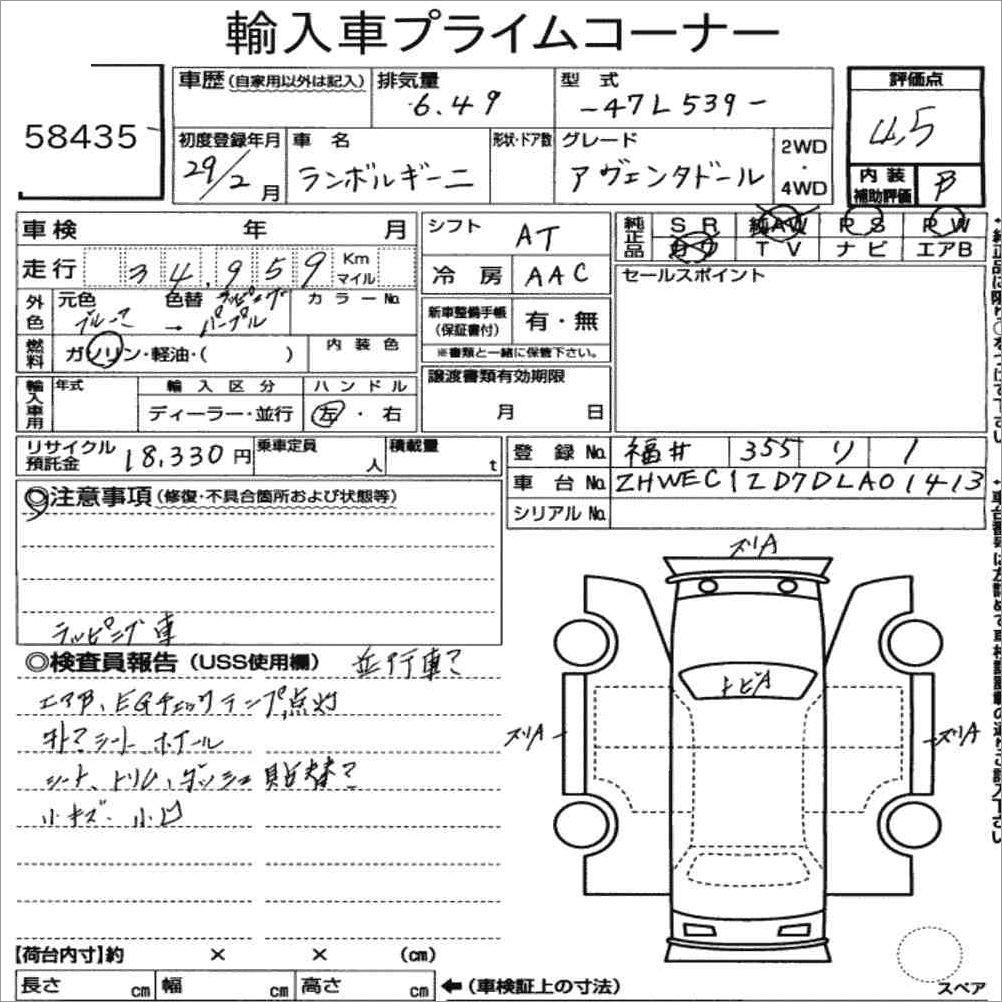 輸入車プライムコーナー
58435
車歴(自家用以外は記入) 排気量 6.49 型式 -47L539-
評価点 4.5
初度登録年月 29/2月 車名 ランボルギーニ 形状・ドア数 グレード アヴェンタドール 2WD・4WD
内装補助評価 B
車検 年 月
シフト AT
純正品 SR 純AW PS PW
TV ナビ エアB
走行 34,959 Km マイル
冷房 AAC
セールスポイント
外色 元色 ブルー? 色替 ラッピング → パープル カラーNo.
新車整備手帳(保証書付) 有・無
※書類と一緒に保管下さい。
燃料 ガソリン・軽油・( ) 内装色
輸入車用 年式 輸入区分 ハンドル
ディーラー・並行 左・右
譲渡書類有効期限
月 日
リサイクル預託金 18,330円 乗車定員 人 積載量 t
登録No. 福井 355 り 1
車台No. ZHWEC1ZD7DLA01413
シリアルNo.
◎注意事項(修復・不具合箇所および状態等)
ラッピング車
◎検査員報告(USS使用欄) 並行車?
エアB、EGチェックランプ点灯
社外?シート ホイール
シート、トリム、ダッシュ貼替?
小キズ・小凹
ズリA
トビA
ズリA
ズリA
【荷台内寸】約 × × (cm)
長さ cm 幅 cm 高さ cm ←(車検証上の寸法)
スペア